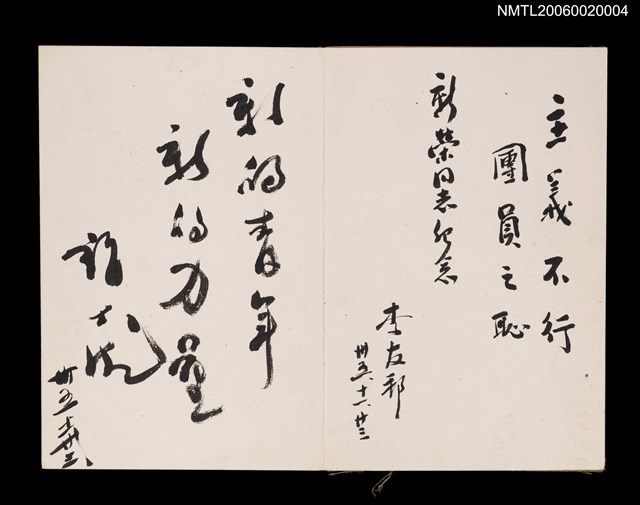 NMTL20060020004
主義不行
團員之恥
新榮同志紀念
李友邦
卅五、十一、廿三
新的青年
新的力量
卅五、十一、廿三